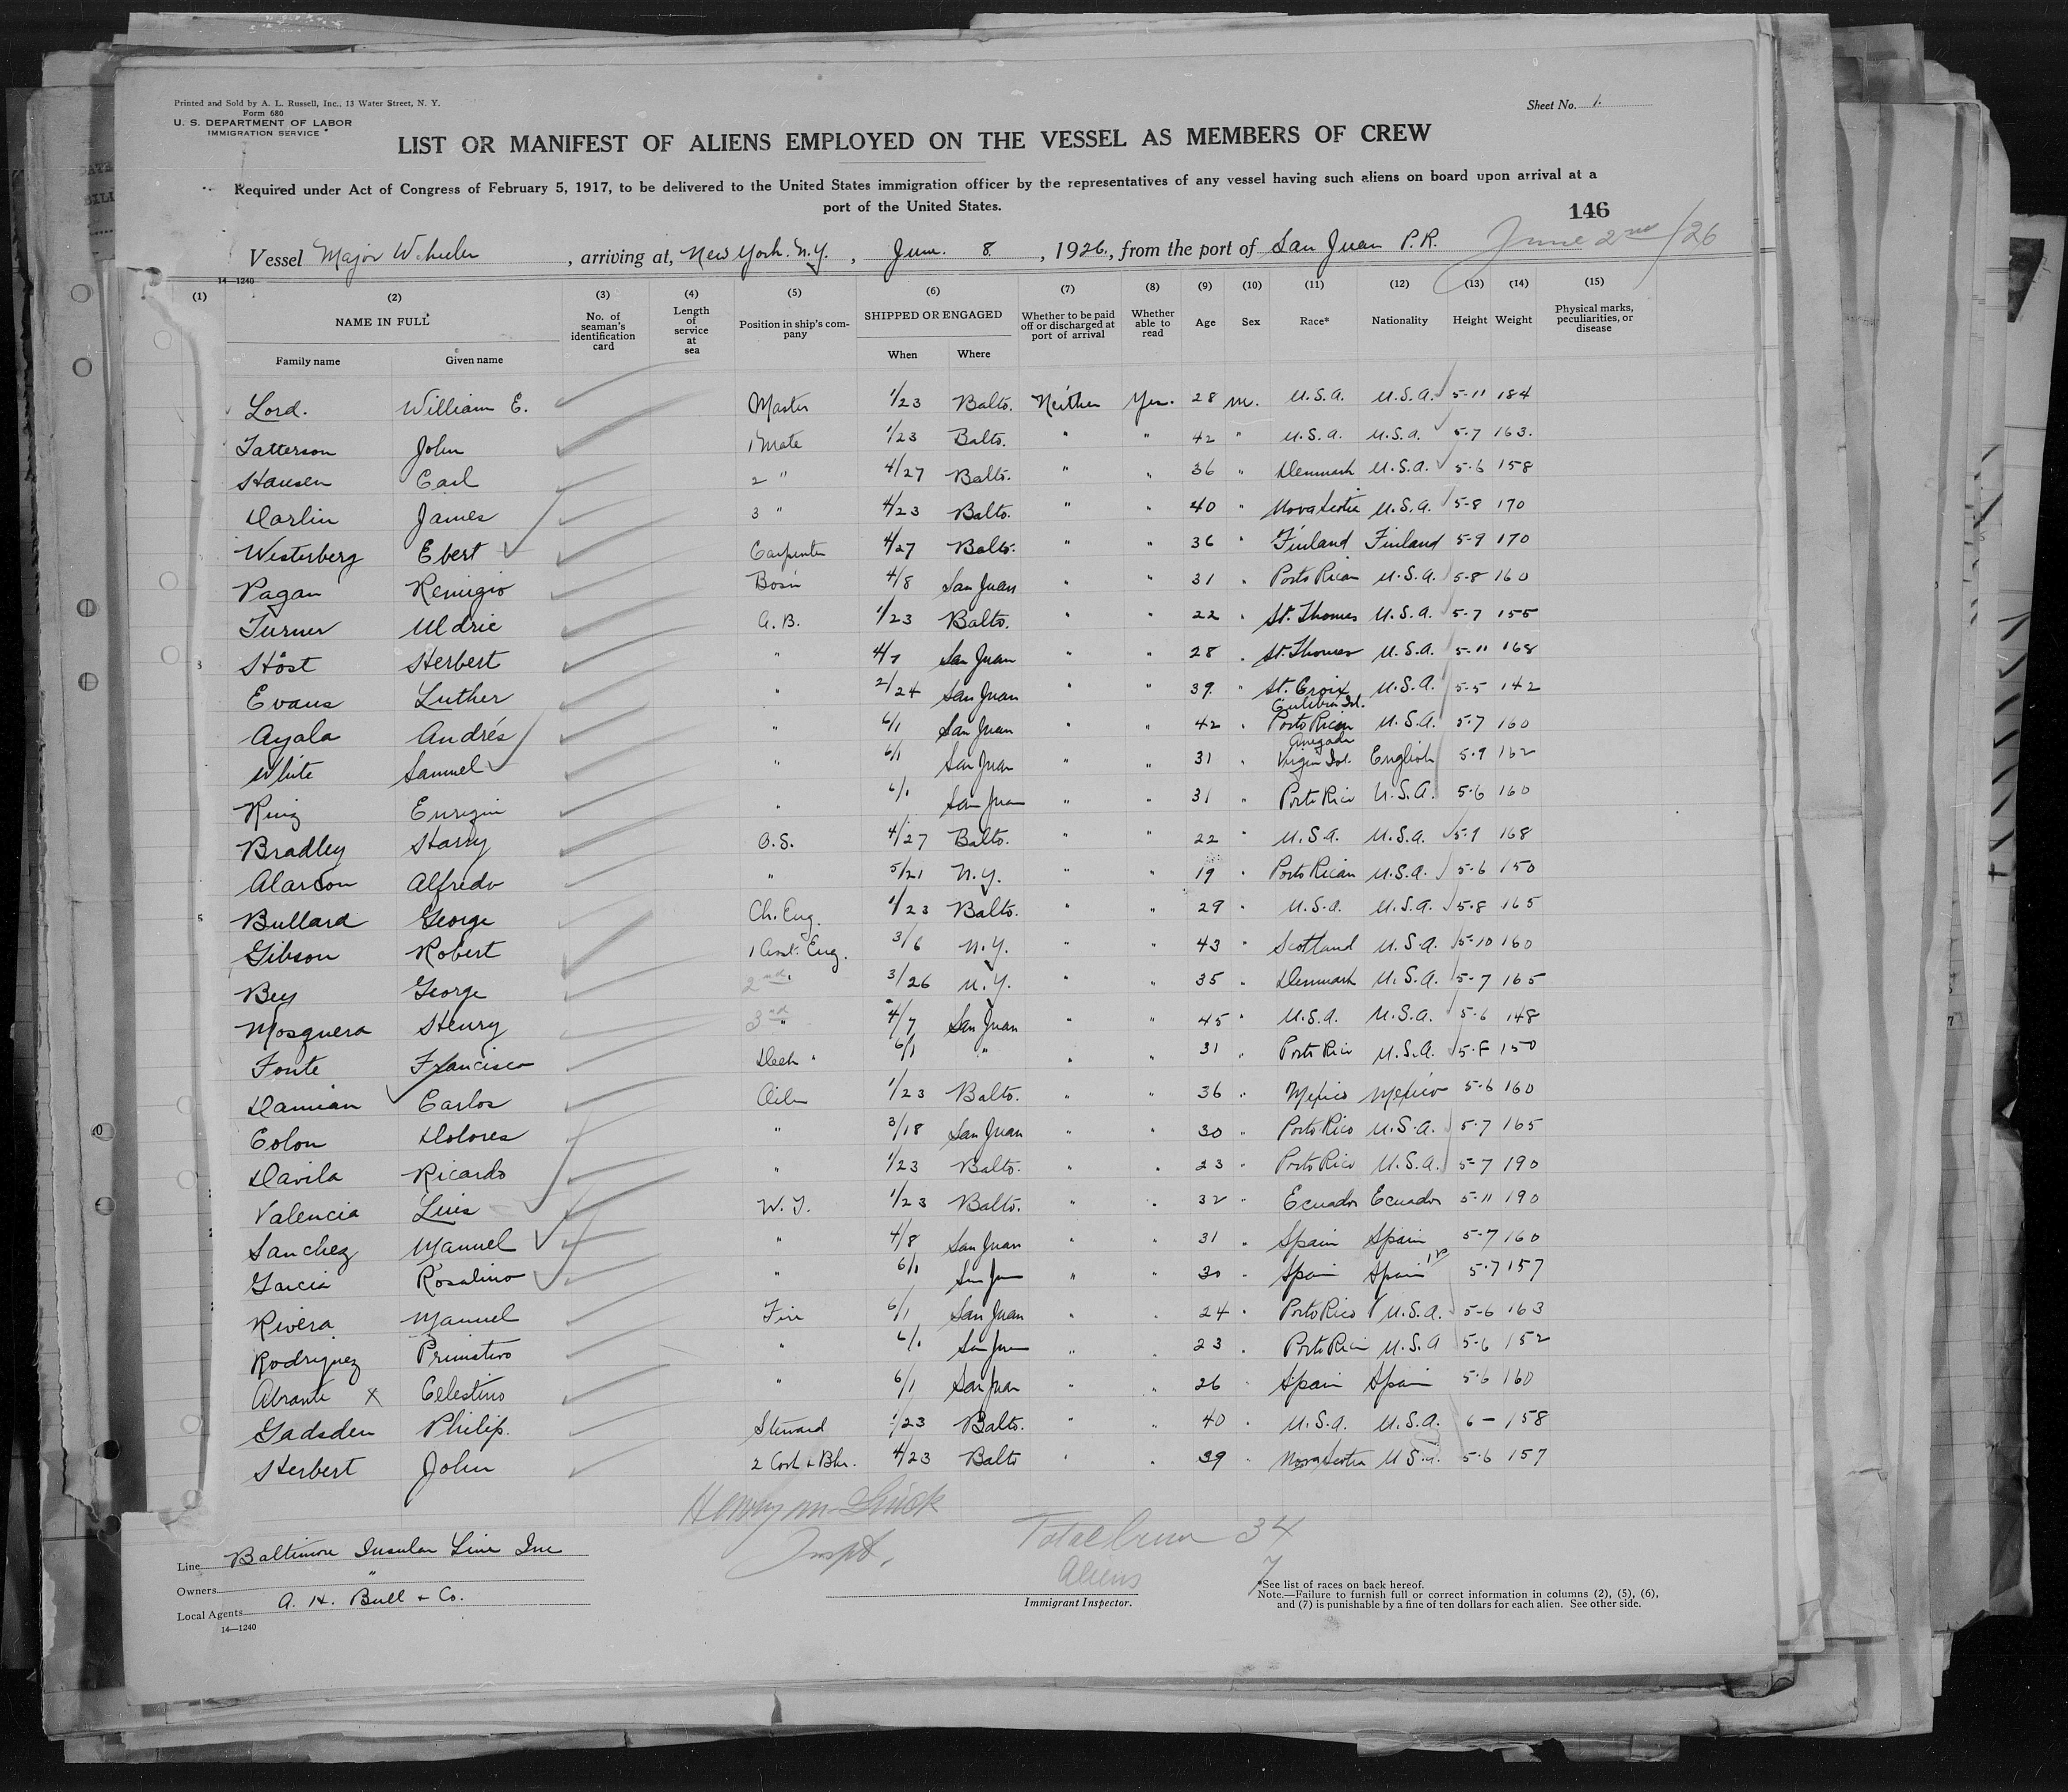 Printed and Sold by A. L. Russell, Inc., 13 Water Street, N. Y.
Form 680
U. S. DEPARTMENT OF LABOR
IMMIGRATION SERVICE
Sheet No. 1.
LIST OR MANIFEST OF ALIENS EMPLOYED ON THE VESSEL AS MEMBERS OF CREW
Required under Act of Congress of February 5, 1917, to be delivered to the United States immigration officer by the representatives of any vessel having such aliens on board upon arrival at a
port of the United States.
146
Vessel Major Wheeler, arriving at, New York. N.Y., June. 8, 1926, from the port of San Juan P.R. June 2nd/26
14—1240
(1) (2) (3) (4) (5) (6) (7) (8) (9) (10) (11) (12) (13) (14) (15)
NAME IN FULL No. of seaman's identification card Length of service at sea Position in ship's company SHIPPED OR ENGAGED Whether to be paid off or discharged at port of arrival Whether able to read Age Sex Race* Nationality Height Weight Physical marks, peculiarities, or disease
Family name Given name When Where
Lord. William E. Master 1/23 Balto. Neither Yes. 28 m. U.S.A. U.S.A. 5-11 184
Tatterson John 1 Mate 1/23 Balto. " " 42 " U.S.A. U.S.A. 5-7 163.
Hansen Carl 2 " 4/27 Balto. " " 36 " Denmark U.S.A. 5-6 158
Harlin James 3 " 4/23 Balto. " " 40 " Nova Scotia U.S.A. 5-8 170
Westerberg Ebert Carpenter 4/27 Balto. " " 36 " Finland Finland 5-9 170
Pagan Remigio Bosn 4/8 San Juan " " 31 " Porto Rican U.S.A. 5-8 160
Turner Uldric A.B. 1/23 Balto. " " 22 " St. Thomas U.S.A. 5-7 155
Höst Herbert " 4/7 San Juan " " 28 " St. Thomas U.S.A. 5-11 168
Evans Luther " 2/24 San Juan " " 39 " St. Croix U.S.A. 5-5 142
Ayala Andrés " 6/1 San Juan " " 42 " Culebra Isl. Porto Rican U.S.A. 5-7 160
White Samuel " 6/1 San Juan " " 31 " Anegada Virgin Isl. English 5-9 162
" 6/1 San Juan " " 31 " Porto Rico U.S.A. 5-6 160
Bradley Harry O.S. 4/27 Balto. " " 22 " U.S.A. U.S.A. 5-9 168
Alarcon Alfredo " 5/21 N.Y. " " 19 " Porto Rican U.S.A. 5-6 150
Bullard George Ch. Eng. 1/23 Balto. " " 29 " U.S.A. U.S.A. 5-8 165
Gibson Robert 1 Asst. Eng. 3/6 N.Y. " " 43 " Scotland U.S.A. 5-10 160
Bey George 2nd " 3/26 N.Y. " " 35 " Denmark U.S.A. 5-7 165
Mosquera Henry 3rd " 4/7 San Juan " " 45 " U.S.A. U.S.A. 5-6 148
Fonte Francisco Deck " 6/1 " " " 31 " Porto Rico U.S.A. 5-8 150
Damian Carlos Oiler 1/23 Balto. " " 36 " Mexico Mexico 5-6 160
Colon Dolores " 3/18 San Juan " " 30 " Porto Rico U.S.A. 5-7 165
Davila Ricardo " 1/23 Balto. " " 23 " Porto Rico U.S.A. 5-7 190
Valencia Luis W.T. 1/23 Balto. " " 32 " Ecuador Ecuador 5-11 190
Sanchez Manuel " 4/8 San Juan " " 31 " Spain Spain 5-7 160
Garcia Rosalino " 6/1 San Juan " " 30 " Spain Spain 5-7 157
Rivera Manuel Fire 6/1 San Juan " " 24 " Porto Rico U.S.A. 5-6 163
Rodriguez Primitivo " 6/1 San Juan " " 23 " Porto Rico U.S.A 5-6 152
Abrante X Celestino " 6/1 San Juan " " 26 " Spain Spain 5-6 160
Gadsden Philip. Steward 1/23 Balto. " " 40 " U.S.A. U.S.A. 6 – 158
Herbert John 2 Cook & Bkr. 4/23 Balto " " 39 " Nova Scotia U.S.A. 5-6 157
Inspt.
Total Crew 34
Aliens 7
Line Baltimore Insular Line Inc
Owners "
Local Agents A. H. Bull & Co.
14—1240
Immigrant Inspector.
*See list of races on back hereof.
Note.—Failure to furnish full or correct information in columns (2), (5), (6),
and (7) is punishable by a fine of ten dollars for each alien. See other side.